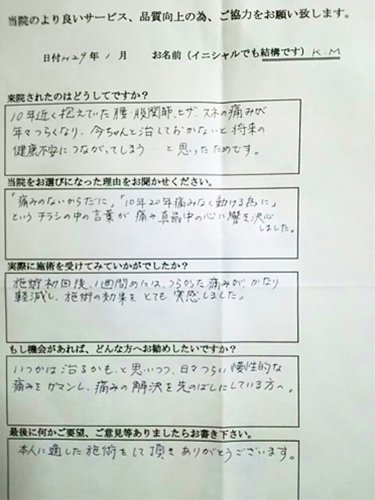 当院のより良いサービス、品質向上の為、ご協力をお願い致します。
日付 H29年 1月 お名前(イニシャルでも結構です) K.M
来院されたのはどうしてですか?
10年近く抱えていた腰・股関節、ヒザ、スネの痛みが
年々つらくなり、今ちゃんと治しておかないと将来の
健康不安につながってしまう…と思ったためです。
当院をお選びになった理由をお聞かせください。
「痛みのないからだに」「10年20年痛みなく動ける為に」
というチラシの中の言葉が痛み真最中の心に響き決心
しました。
実際に施術を受けてみていかがでしたか?
施術初回後、1週間めには、つらかった痛みが、かなり
軽減し、施術の効果をとても実感しました。
もし機会があれば、どんな方へお勧めしたいですか?
いつかは治るかも、と思いつつ、日々つらい慢性的な
痛みをガマンし、痛みの解決を先のばしにしている方へ。
最後に何かご要望、ご意見等ありましたらお書き下さい。
本人に適した施術をして頂きありがとうございます。